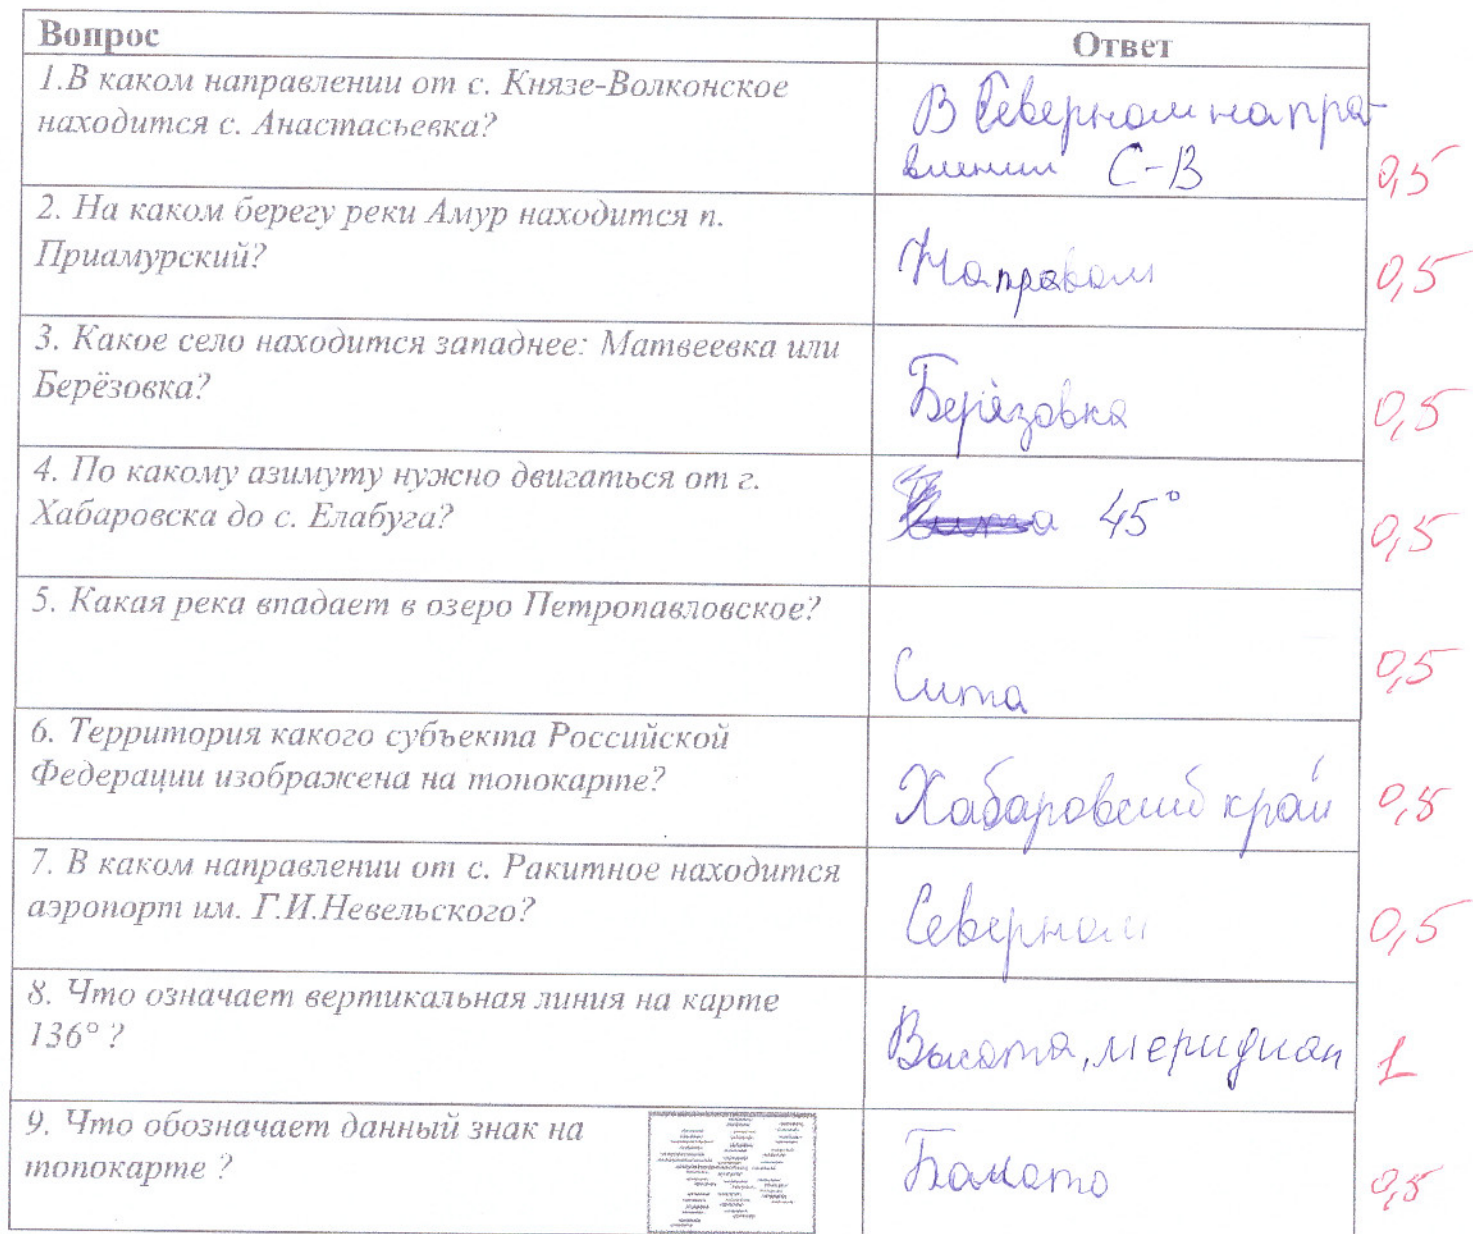 Вопрос
Ответ
1.В каком направлении от с. Князе-Волконское
находится с. Анастасьевка?
В Северном напра-
влении С-В
0,5
2. На каком берегу реки Амур находится п.
Приамурский?
На правом
0,5
3. Какое село находится западнее: Матвеевка или
Берёзовка?
Берёзовка
0,5
4. По какому азимуту нужно двигаться от г.
Хабаровска до с. Елабуга?
45°
0,5
5. Какая река впадает в озеро Петропавловское?
Сита
0,5
6. Территория какого субъекта Российской
Федерации изображена на топокарте?
Хабаровский край
0,5
7. В каком направлении от с. Ракитное находится
аэропорт им. Г.И.Невельского?
Северном
0,5
8. Что означает вертикальная линия на карте
136° ?
Высота, меридиан
1
9. Что обозначает данный знак на
топокарте ?
Болото
0,5